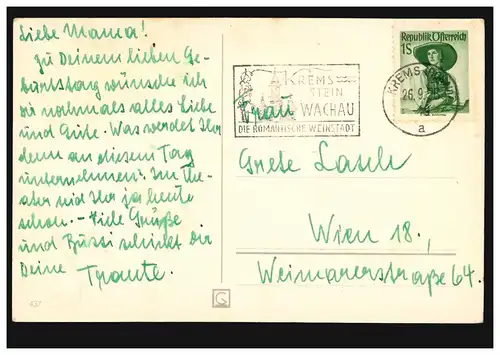 Liebe Mama!
Zu Deinem lieben Ge-
burtstag wünsche ich
Dir nochmals alles Liebe
und Gute. Was werdet Ihr
denn an diesem Tag
unternehmen? Im The-
ater seid Ihr ja heute
schon. - Viele Grüße
und Bussi schickt Dir
Deine Traute.
437
KREMS
STEIN
WACHAU
DIE ROMANTISCHE WEINSTADT
Republik Österreich
1S
KREMS
26.9.
a
Frau
Grete Lasch
Wien 18.,
Weimarerstraße 64.